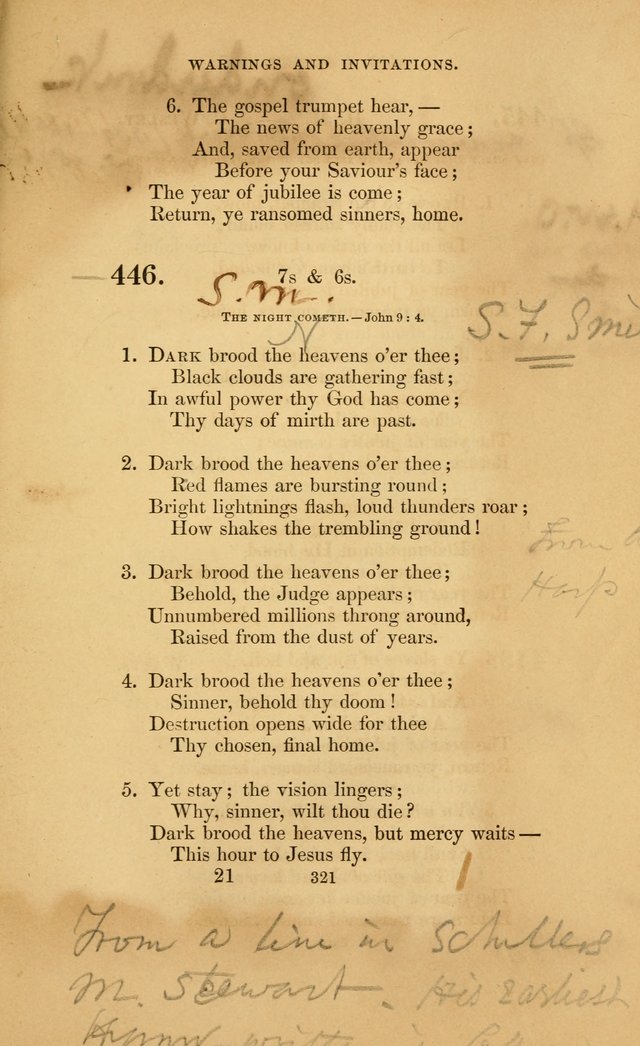 WARNINGS AND INVITATIONS.
6. The gospel trumpet hear, —
The news of heavenly grace;
And, saved from earth, appear
Before your Saviour's face;
The year of jubilee is come;
Return, ye ransomed sinners, home.
446. 7s & 6s.
S.M.
THE NIGHT COMETH. — John 9 : 4.
N
S. F. Smi
1. DARK brood the heavens o'er thee;
Black clouds are gathering fast;
In awful power thy God has come;
Thy days of mirth are past.
2. Dark brood the heavens o'er thee;
Red flames are bursting round;
Bright lightnings flash, loud thunders roar;
How shakes the trembling ground!
From
Harp
3. Dark brood the heavens o'er thee;
Behold, the Judge appears;
Unnumbered millions throng around,
Raised from the dust of years.
4. Dark brood the heavens o'er thee;
Sinner, behold thy doom!
Destruction opens wide for thee
Thy chosen, final home.
5. Yet stay; the vision lingers;
Why, sinner, wilt thou die?
Dark brood the heavens, but mercy waits —
This hour to Jesus fly.
21 321
From a line in Schillers
M. Stewart. His Earliest